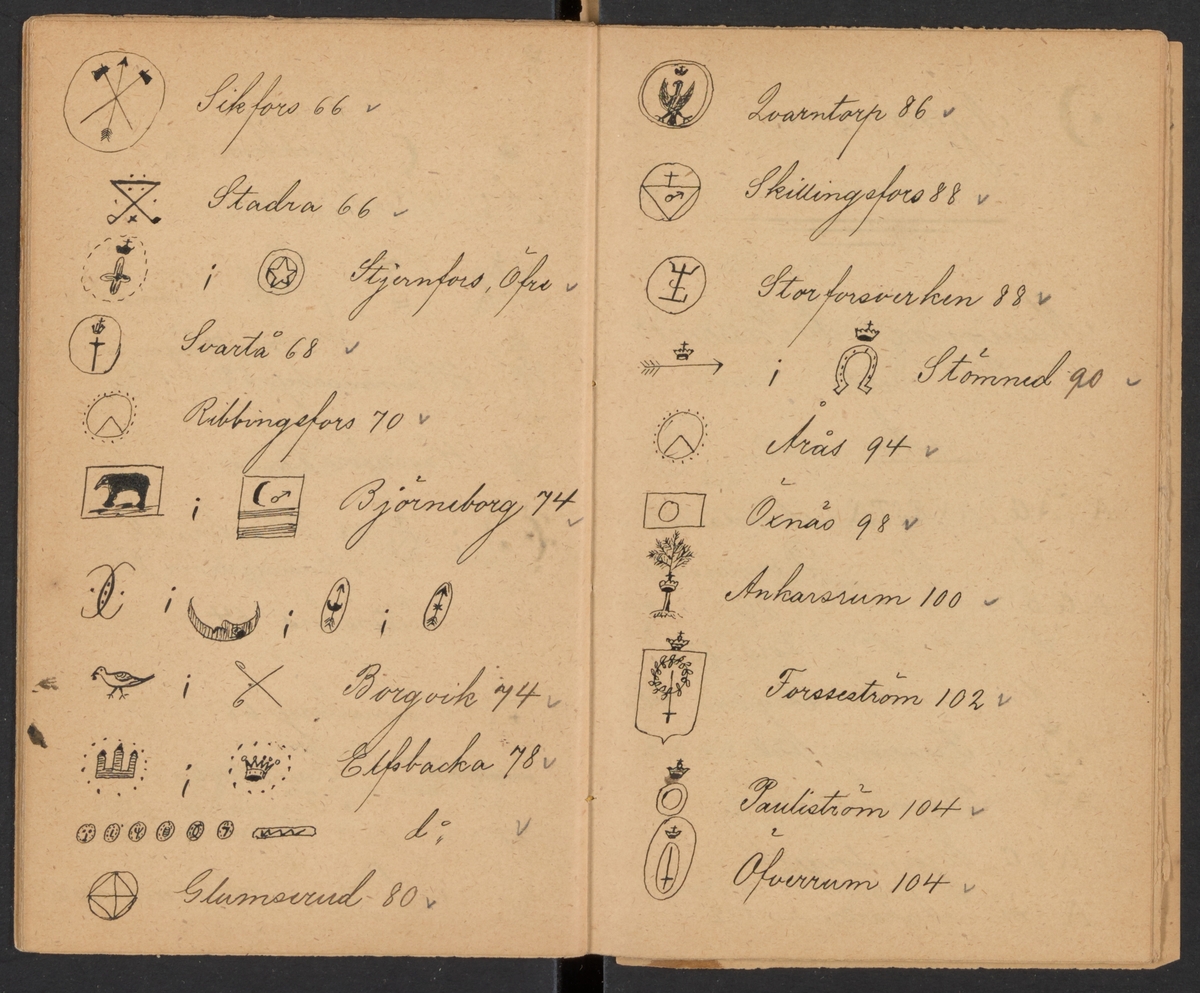 Sikfors 66
Stadra 66
i Stjernfors, Öfre
Svartå 68
Ribbingsfors 70
i Björneborg 74
i i i
i Borgvik 74
i Elfsbacka 78
do
Glumserud 80
Qvarntorp 86
Skillingsfors 88
Storforsverken 88
i Stömned 90
Årås 94
Öxnäs 98
Ankarsrum 100
Forsseström 102
Pauliström 104
Öfverrum 104